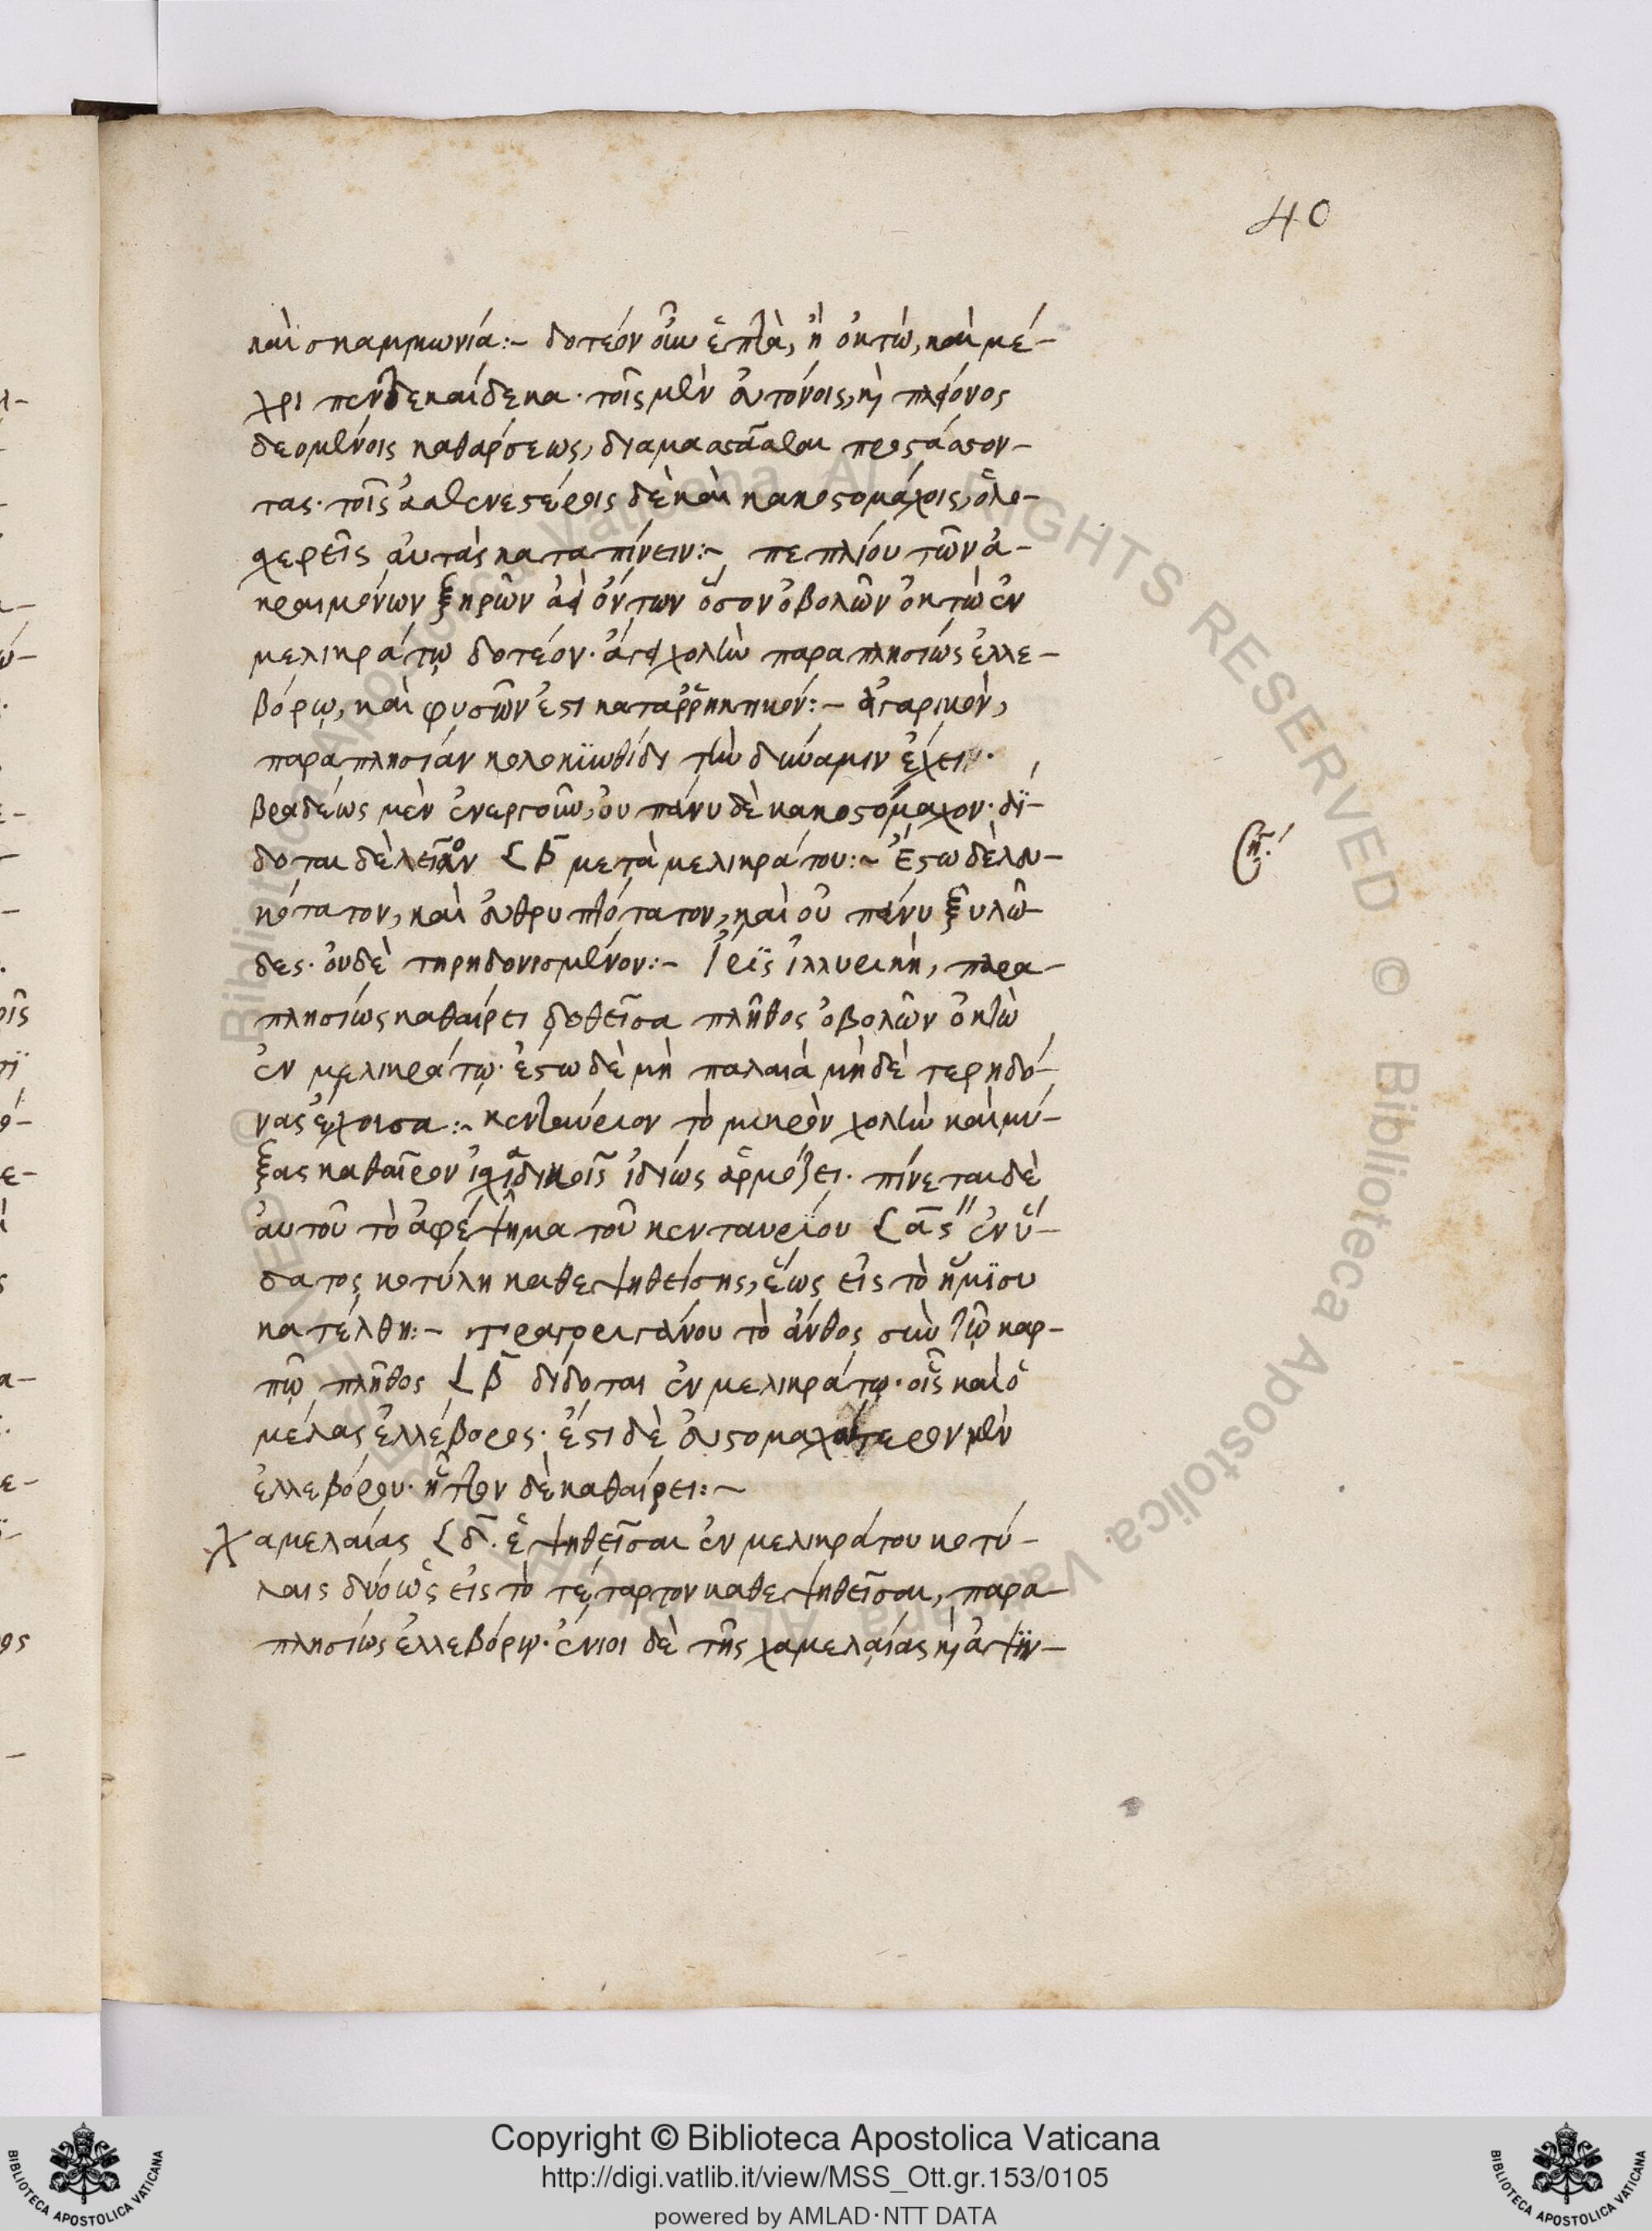 40
καὶ σκαμμωνία:- δοτέον οὖν ἑπτὰ, ἢ ὀκτὼ, καὶ μέ-
χρι πεντεκαίδεκα· τοῖς μὲν εὐτόνοις, κ πλείονος
δεομένοις καθάρσεως, διαμασᾶσθαι προστάσσον-
τας· τοῖς ἀσθενεστέροις δὲ καὶ κακοστομάχοις, ὁλο-
χερεῖς αὐτὰς καταπίνειν:- πεπλίου τῶν ἀ-
κρεμόνων ξηρῶν ὄντων ὅσον ὀβολῶν ὀκτὼ ἐν
μελικράτῳ δοτέον· ἄγει χολὴν παραπλησίως ἐλλε-
βόρω, καὶ φυσῶν ἐστι καταῤῥηκτικόν:- ἀγαρικὸν,
παραπλησίαν κολοκϋνθίδι τὴν δύναμιν ἔχει·
βραδέως μὲν ἐνεργοῦν, ου πάνυ δὲ κακοστόμαχον· δΐ-
δοται δὲ λεῖον β μετὰ μελικράτου:- Ἔστω δὲ λευ-
κότατον, καὶ εὐθρυπτότατον, καὶ οὐ πάνυ ξυλῶ-
δες· οὐδὲ τηρηδονισμένον:- ἶρϊς ἰλλυρικὴ, παρα-
πλησίως καθαίρει δοθεῖσα πλῆθος ὀβολῶν ὀκτὼ
ἐν μελικράτῳ· ἔστω δὲ μὴ παλαιά μηδὲ τερηδό-
νας ἔχουσα:- κενταύριον τὸ μικρὸν χολὴν καὶ μύ-
ξας καθαῖρον ἰσχιαδικοῖς ἰδίως ἁρμόζει· πίνεται δὲ
αὐτοῦ τὸ ἀφέψημα τοῦ κενταυρίου ἐν ὕ-
δατος κοτύλη καθεψηθείσης, ἕως εἰς τὸ ἥμϊσυ
κατέλθη:- τραγοριγάνου τὸ ἄνθος σὺν τῷ καρ-
πῷ πλῆθος β δίδοται ἐν μελικράτῳ· οἷς καὶ ὁ
μέλας ἐλλέβορος· ἔστι δὲ εὐστομαχώτερον μὲν
ἐλλεβόρου· ἧττον δὲ καθαίρει:-
χαμελαίας δ. ἑψηθεῖσαι ἐν μελικράτου κοτύ-
λαις δύο ὡς εἰς τὸ τέταρτον καθεψηθεῖσαι, παρα-
πλησίως ἐλλεβόρῳ· ἔνιοι δὲ τῆς χαμελαίας κ ἀψϊν-
Copyright © Biblioteca Apostolica Vaticana
http://digi.vatlib.it/view/MSS_Ott.gr.153/0105
powered by AMLAD·NTT DATA